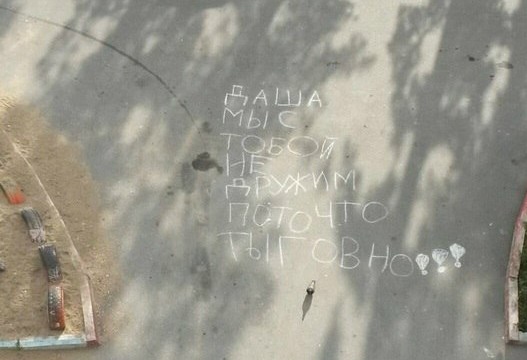 ДАША
МЫ С
ТОБОЙ
НЕ
ДРУЖИМ
ПОТОЧТО
ТЫ ГОВНО!!!